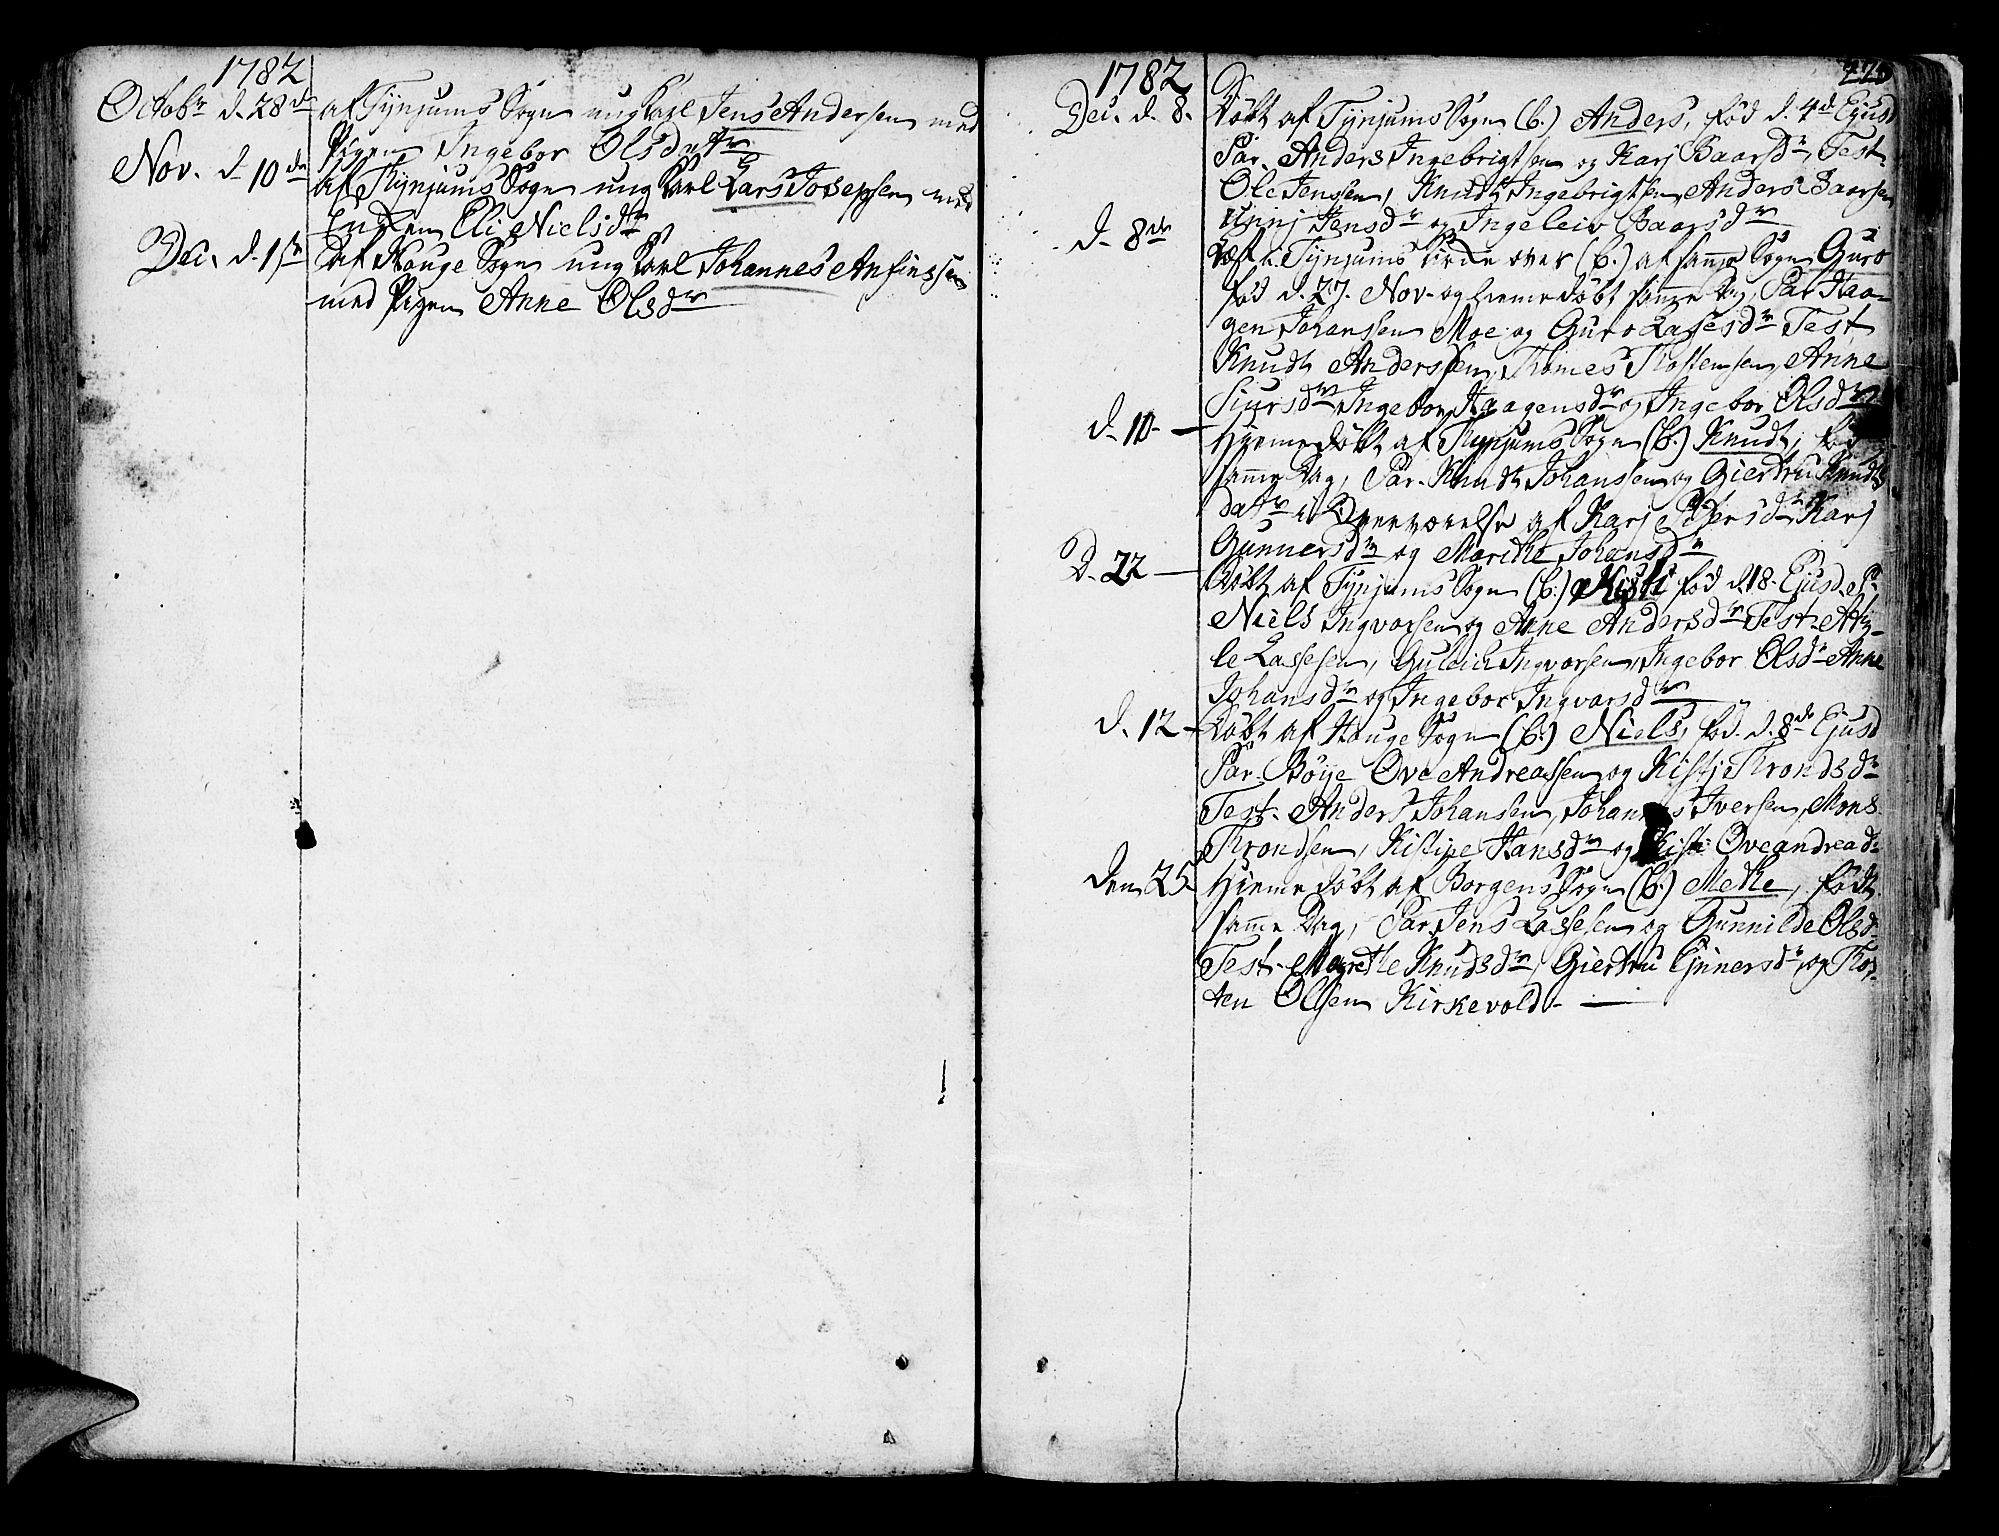 1782
Octobr d. 28de af Tynjums Sogn ung Karl Jens Andersen med
Pigen Ingebor Olsdatr
Nov. d. 10de af Tynjums Sogn ung Karl Lars Josepsen med
Enken Eli Nielsdr
Dec. d. 1ste af Hauge Sogn ung Karl Johannes Anfinssen
med Pigen Anne Olsdr
1782
Dec. d. 8. Døbt af Tynjums Sogn (b.) Anders, fød d. 4de Ejusd
Par. Anders Ingebrigtsen og Karj Baarsdr Test.
Ole Jenssen, Knudt Ingebrigtsen, Anders Baarsen
Jensdr og Ingeleiv Baarsdr
d. 8de Læst i Tynjums Kirke over (b.) af samme Sogn Guro
fød d. 27. Nov. og hiemedøbt samme Dag, Par. Haa-
gen Johansen Moe og Guro Lassesdr Test.
Knudt Anderssen, Thomes Thostensen, Anne
Siursdr, Ingebor Haagensdr og Ingebor Olsdr
d. 10 Hjemedøbt af Tynjums Sogn (b.) Knudt, fød
samme Dag, Par. Knudt Johansen og Giertru Knudts
datr i Overværelse af Karj Pedersdr Karj
Gunnersdr og Marithe Johansdr
D. 22 Døbt af Tynjums Sogn (b.) Kisti fød d. 18. Ejusd. P.
Niels Ingvorsen og Anne Andersdr Test. At-
le Lassesen, Guleich Ingvorsen, Ingebor Olsdr Anne
Johansdr og Ingebor Ingvorsdr
d. 12 Døbt af Hauge Sogn (b.) Niels, fød d. 8de Ejusd
Par. Bøye Ove Andreassen og Kistj Throndsdr
Test. Anders Johansen, Johannes Iversen, Mons
Throndsen, Kistine Hansdr og Kisti Oveandread.
Den 25. Hjemedøbt af Borgens Sogn (b.) Methe, født
samme Dag, Par. Jens Lassesen og Gunnilde Olsd.
Test. Magrethe Knudsdr, Giertru Ejnersdr, og Thor
ten Olssen Kirkevold